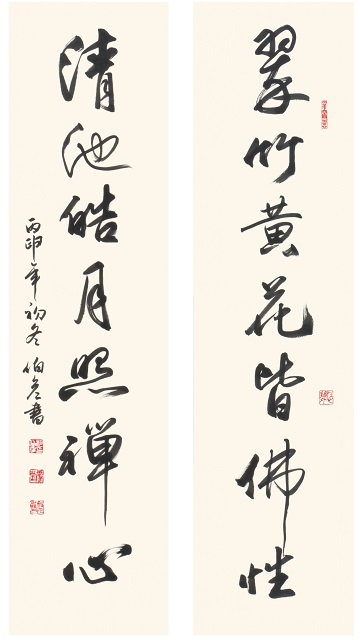 翠竹黄花皆佛性
清池皓月照禅心
丙申年初冬
伯彦书